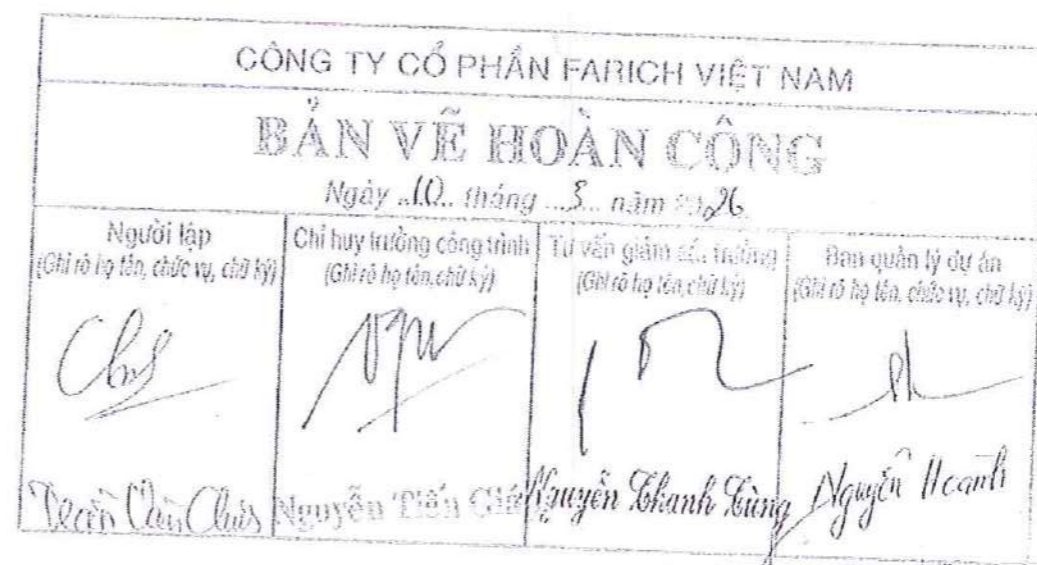 CÔNG TY CỔ PHẦN FARICH VIỆT NAM
BẢN VẼ HOÀN CÔNG
Ngày ..10.. tháng ...3... năm 2026
Người lập
(Ghi rõ họ tên, chức vụ, chữ ký)
Chỉ huy trưởng công trình
(Ghi rõ họ tên, chữ ký)
Tư vấn giám sát trưởng
(Ghi rõ họ tên, chữ ký)
Ban quản lý dự án
(Ghi rõ họ tên, chức vụ, chữ ký)
Trần Văn
Nguyễn Tiến
Nguyễn Thanh Tùng
Nguyễn